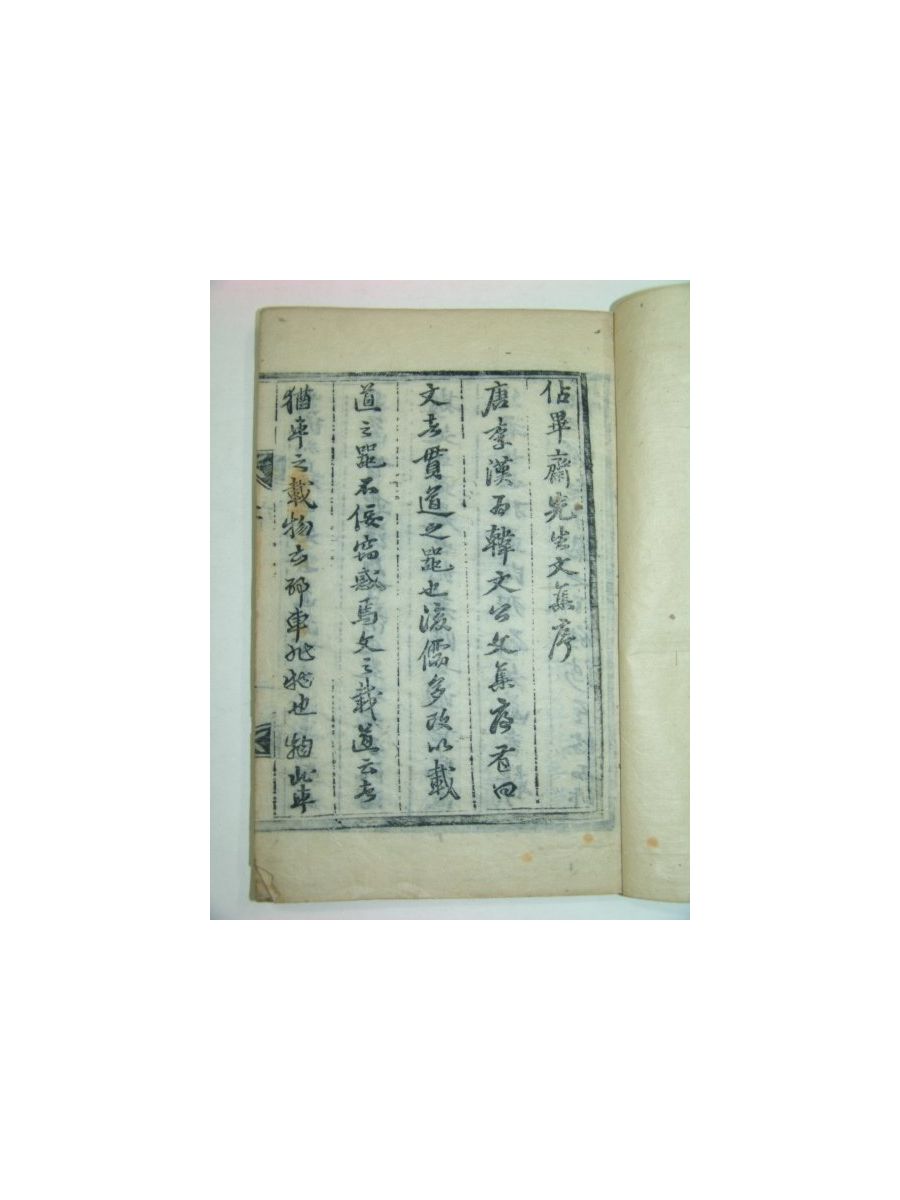 佔畢齋先生文集序
唐李漢為韓文公文集序有曰
文者貫道之器也後儒多改以載
道之器不佞竊惑焉文之載道云者
猶車之載物云耶車非物也物此車